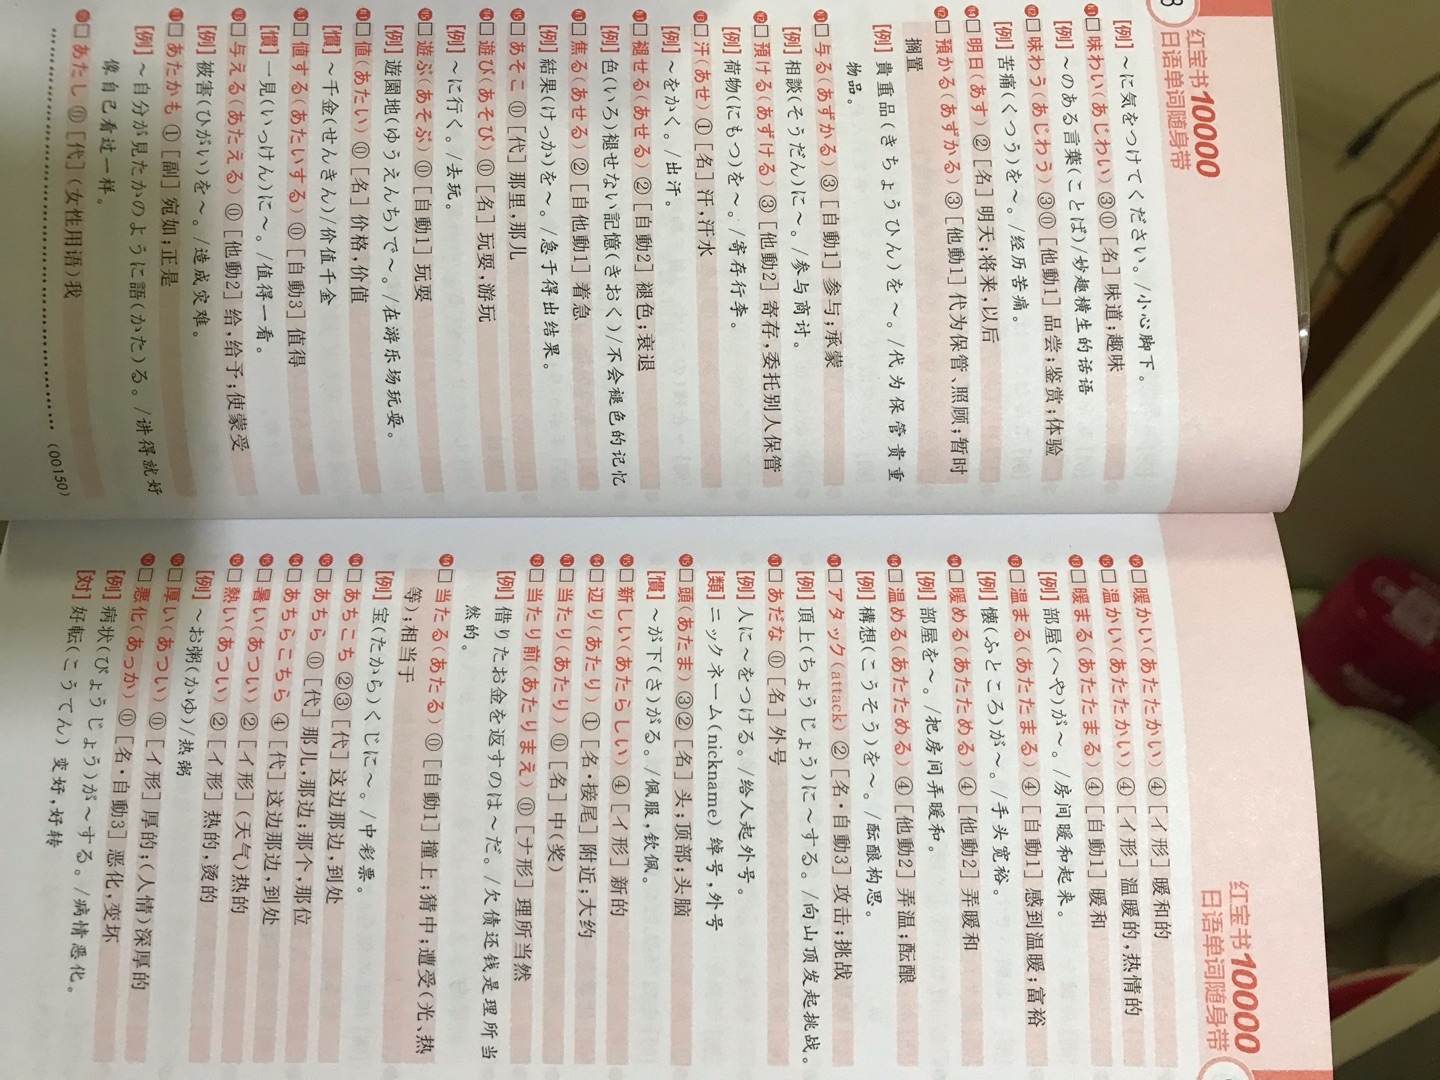 红宝书10000
日语单词随身带
[例] ～に気をつけてください。/小心脚下。
□味わい(あじわい) ③⓪ [名] 味道;趣味
[例] ～のある言葉(ことば)/妙趣横生的话语
□味わう(あじわう) ③⓪ [他動1] 品尝;鉴赏;体验
[例] 苦痛(くつう)を～。/经历苦痛。
□明日(あす) ② [名] 明天;将来,以后
□預かる(あずかる) ③ [他動1] 代为保管、照顾;暂时
搁置
[例] 貴重品(きちょうひん)を～。/代为保管贵重
物品。
□与る(あずかる) ③ [自動1] 参与;承蒙
[例] 相談(そうだん)に～。/参与商讨。
□預ける(あずける) ③ [他動2] 寄存,委托别人保管
[例] 荷物(にもつ)を～。/寄存行李。
□汗(あせ) ① [名] 汗,汗水
[例] ～をかく。/出汗。
□褪せる(あせる) ② [自動2] 褪色;衰退
[例] 色(いろ)褪せない記憶(きおく)/不会褪色的记忆
□焦る(あせる) ② [自他動1] 着急
[例] 結果(けっか)を～。/急于得出结果。
□あそこ ⓪ [代] 那里,那儿
□遊び(あそび) ⓪ [名] 玩耍,游玩
[例] ～に行く。/去玩。
□遊ぶ(あそぶ) ⓪ [自動1] 玩耍
[例] 遊園地(ゆうえんち)で～。/在游乐场玩耍。
□値(あたい) ⓪ [名] 价格,价值
[慣] ～千金(せんきん)/价值千金
□値する(あたいする) ⓪ [自動3] 值得
[慣] 一見(いっけん)に～。/值得一看。
□与える(あたえる) ⓪ [他動2] 给,给予;使蒙受
[例] 被害(ひがい)を～。/造成灾难。
□あたかも ① [副] 宛如;正是
[例] ～自分が見たかのように語(かた)る。/讲得就好
像自己看过一样。
□あたし ⓪ [代] (女性用语)我
(00150)
红宝书10000
日语单词随身带
□暖かい(あたたかい) ④ [イ形] 暖和的
□温かい(あたたかい) ④ [イ形] 温暖的,热情的
□暖まる(あたたまる) ④ [自動1] 暖和
[例] 部屋(へや)が～。/房间暖和起来。
□温まる(あたたまる) ④ [自動1] 感到温暖;富裕
[例] 懐(ふところ)が～。/手头宽裕。
□暖める(あたためる) ④ [他動2] 弄暖和
[例] 部屋を～。/把房间弄暖和。
□温める(あたためる) ④ [他動2] 弄温;酝酿
[例] 構想(こうそう)を～。/酝酿构思。
□アタック(attack) ② [名・自動3] 攻击;挑战
[例] 頂上(ちょうじょう)に～する。/向山顶发起挑战。
□あだな ⓪ [名] 外号
[例] 人に～をつける。/给人起外号。
[類] ニックネーム(nickname) 绰号,外号
□頭(あたま) ③② [名] 头;顶部;头脑
[慣] ～が下(さ)がる。/佩服,钦佩。
□新しい(あたらしい) ④ [イ形] 新的
□辺り(あたり) ① [名・接尾] 附近;大约
□当たり(あたり) ⓪ [名] 中(奖)
□当たり前(あたりまえ) ⓪ [ナ形] 理所当然
[例] 借りたお金を返すのは～だ。/欠债还钱是理所当
然的。
□当たる(あたる) ⓪ [自動1] 撞上;猜中;遭受(光、热
等);相当于
[例] 宝(たから)くじに～。/中彩票。
□あちこち ②③ [代] 这边那边,到处
□あちら ⓪ [代] 那儿,那边;那个,那位
□あちらこちら ④ [代] 这边那边,到处
□暑い(あつい) ② [イ形] (天气)热的
□熱い(あつい) ② [イ形] 热的,烫的
[例] ～お粥(かゆ)/热粥
□厚い(あつい) ⓪ [イ形] 厚的;(人情)深厚的
□悪化(あっか) ⓪ [名・自動3] 恶化,变坏
[例] 病状(びょうじょう)が～する。/病情恶化。
[対] 好転(こうてん) 变好,好转